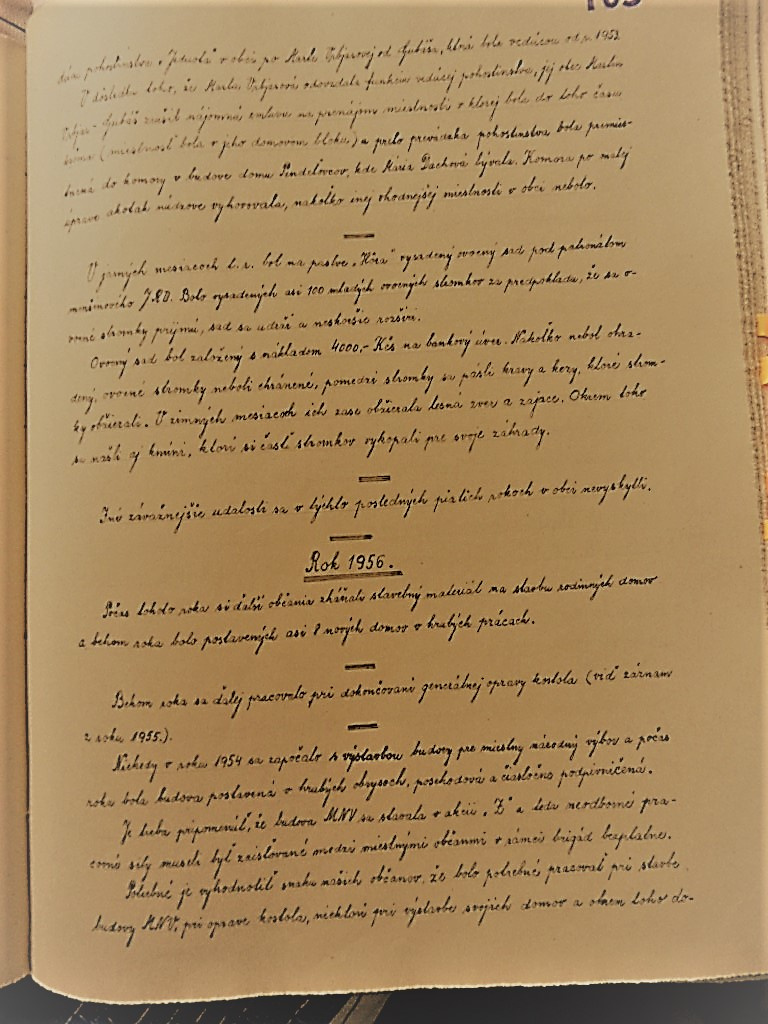 105
pohostinstva „Jednota" v obci po Marte Vrbjarovej od Gubáša, ktorá bola vedúcou od r. 1953.
V dôsledku toho, že Marta Vrbjarová odovzdala funkciu vedúcej pohostinstva, jej otec Martin
Gubáš zrušil nájomnú zmluvu na prenájom miestnosti v ktorej bola do toho času
(miestnosť bola v jeho domovom bloku) a preto prevádzka pohostinstva bola premies-
tnená do komory v budove domu Pindešovcov, kde Mária Dachová bývala. Komora po malej
úprave akotak núdzove vyhovovala, nakoľko inej vhodnejšej miestnosti v obci nebolo.
V jarných mesiacoch t. r. bol na pastve „Hôra" vysadený ovocný sad pod patronátom
menšinového J.R.D. Bolo vysadených asi 100 mladých ovocných stromkov za predpokladu, že sa o-
vocné stromky prijmú, sad sa udrží a neskoršie rozšíri.
Ovocný sad bol založený s nákladom 4000,- Kčs na bankový úver. Nakoľko nebol ohra-
dený, ovocné stromky neboli chránené, pomedzi stromky sa pásli kravy a kozy, ktoré strom-
ky obžierali. V zimných mesiacoch ich zase obžierala lesná zver a zajace. Okrem toho
sa našli aj kmíni, ktorí si časť stromkov vykopali pre svoje záhrady.
Iné závažnejšie udalosti sa v týchto posledných piatich rokoch v obci nevyskytli.
Rok 1956.
Počas tohoto roka si ďalší občania zháňali stavebný materiál na stavbu rodinných domov
a behom roka bolo postavených asi 8 nových domov v hrubých prácach.
Behom roka sa ďalej pracovalo pri dokončovaní generálnej opravy kostola (viď záznam
z roku 1955.).
Niekedy v roku 1954 sa započalo s výstavbou budovy pre miestny národný výbor a počas
roka bola budova postavená v hrubých obrysoch, poschodová a čiastočne podpivničená.
Je treba pripomenúť, že budova MNV sa stavala v akcii „Z" a teda neodborné pra-
covné sily museli byť zaisťované medzi miestnymi občanmi v rámci brigád bezplatne.
Potrebné je vyhodnotiť snahu našich občanov, že bolo potrebné pracovať pri stavbe
budovy MNV, pri oprave kostola, niektorí pri výstavbe svojich domov a okrem toho do-